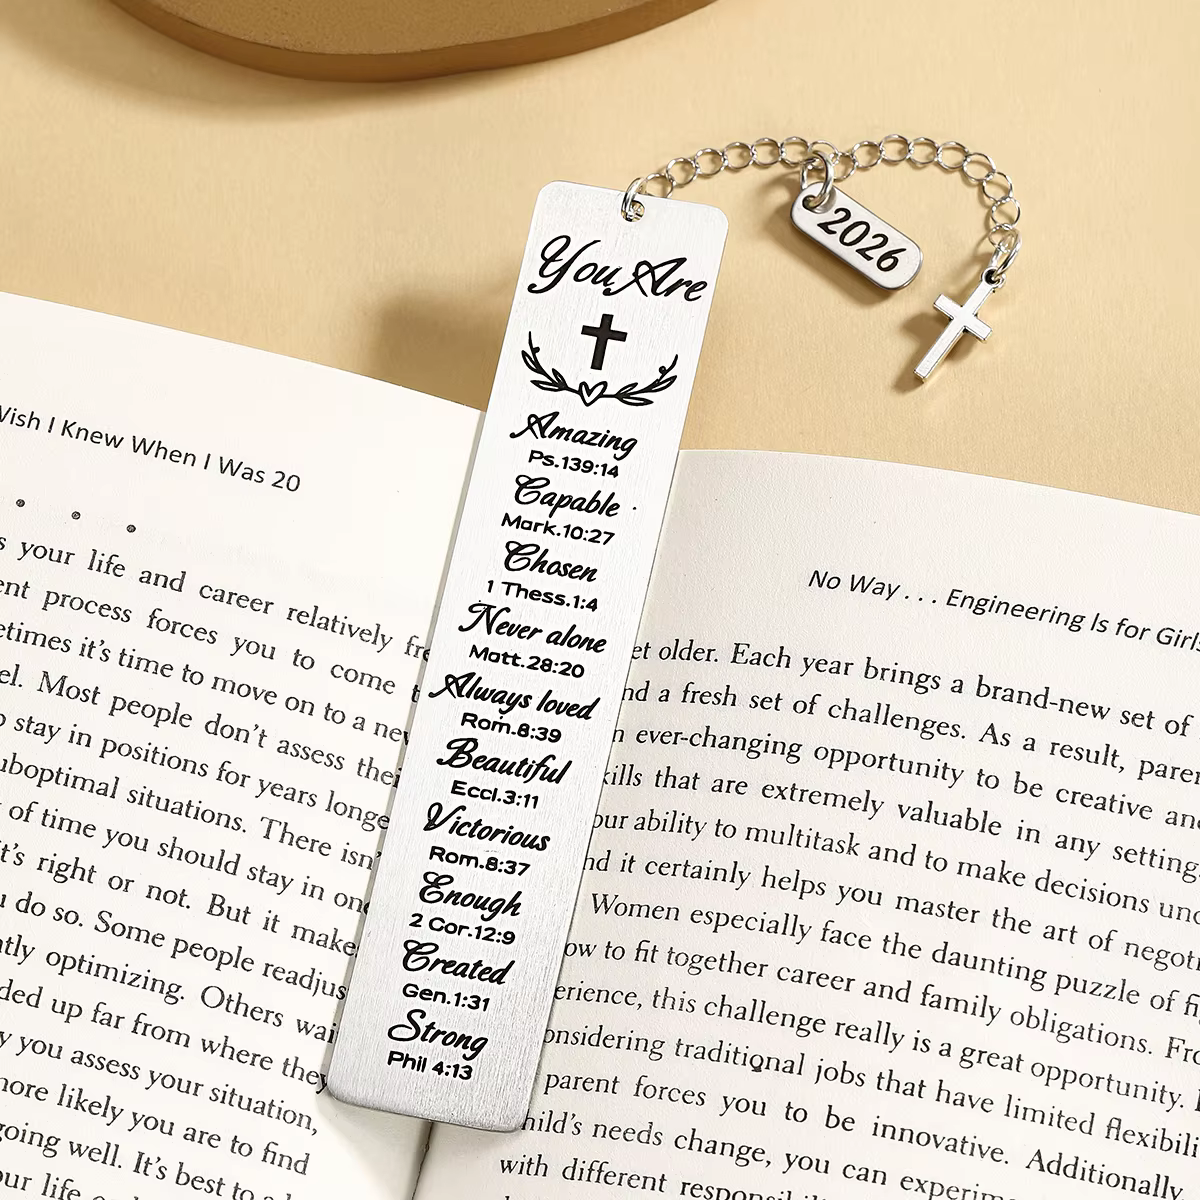 2026
You Are
Amazing
Ps.139:14
Capable
Mark.10:27
Chosen
1 Thess.1:4
Never alone
Matt.28:20
Always loved
Rom.8:39
Beautiful
Eccl.3:11
Victorious
Rom.8:37
Enough
2 Cor.12:9
Created
Gen.1:31
Strong
Phil 4:13
Wish I Knew When I Was 20
s your life and career relatively
process forces you to come
it's time to move on to a new
Most people don't assess
stay in positions for years
situations. There isn'
of time you should stay in
it's right or not. But it make
do so. Some people readjus
optimizing. Others wai
up far from where they
you assess your situation,
more likely you are to find
going well. It's best to
our life
No Way . . . Engineering Is for Girls
older. Each year brings a brand-new set of
a fresh set of challenges. As a result, paren
ever-changing opportunity to be creative and
skills that are extremely valuable in any setting
our ability to multitask and to make decisions
it certainly helps you master the art of
Women especially face the daunting puzzle of
to fit together career and family obligations.
this challenge really is a great opportunity.
considering traditional jobs that have limited
parent forces you to be innovative. Additionally
child's needs change, you can
with different